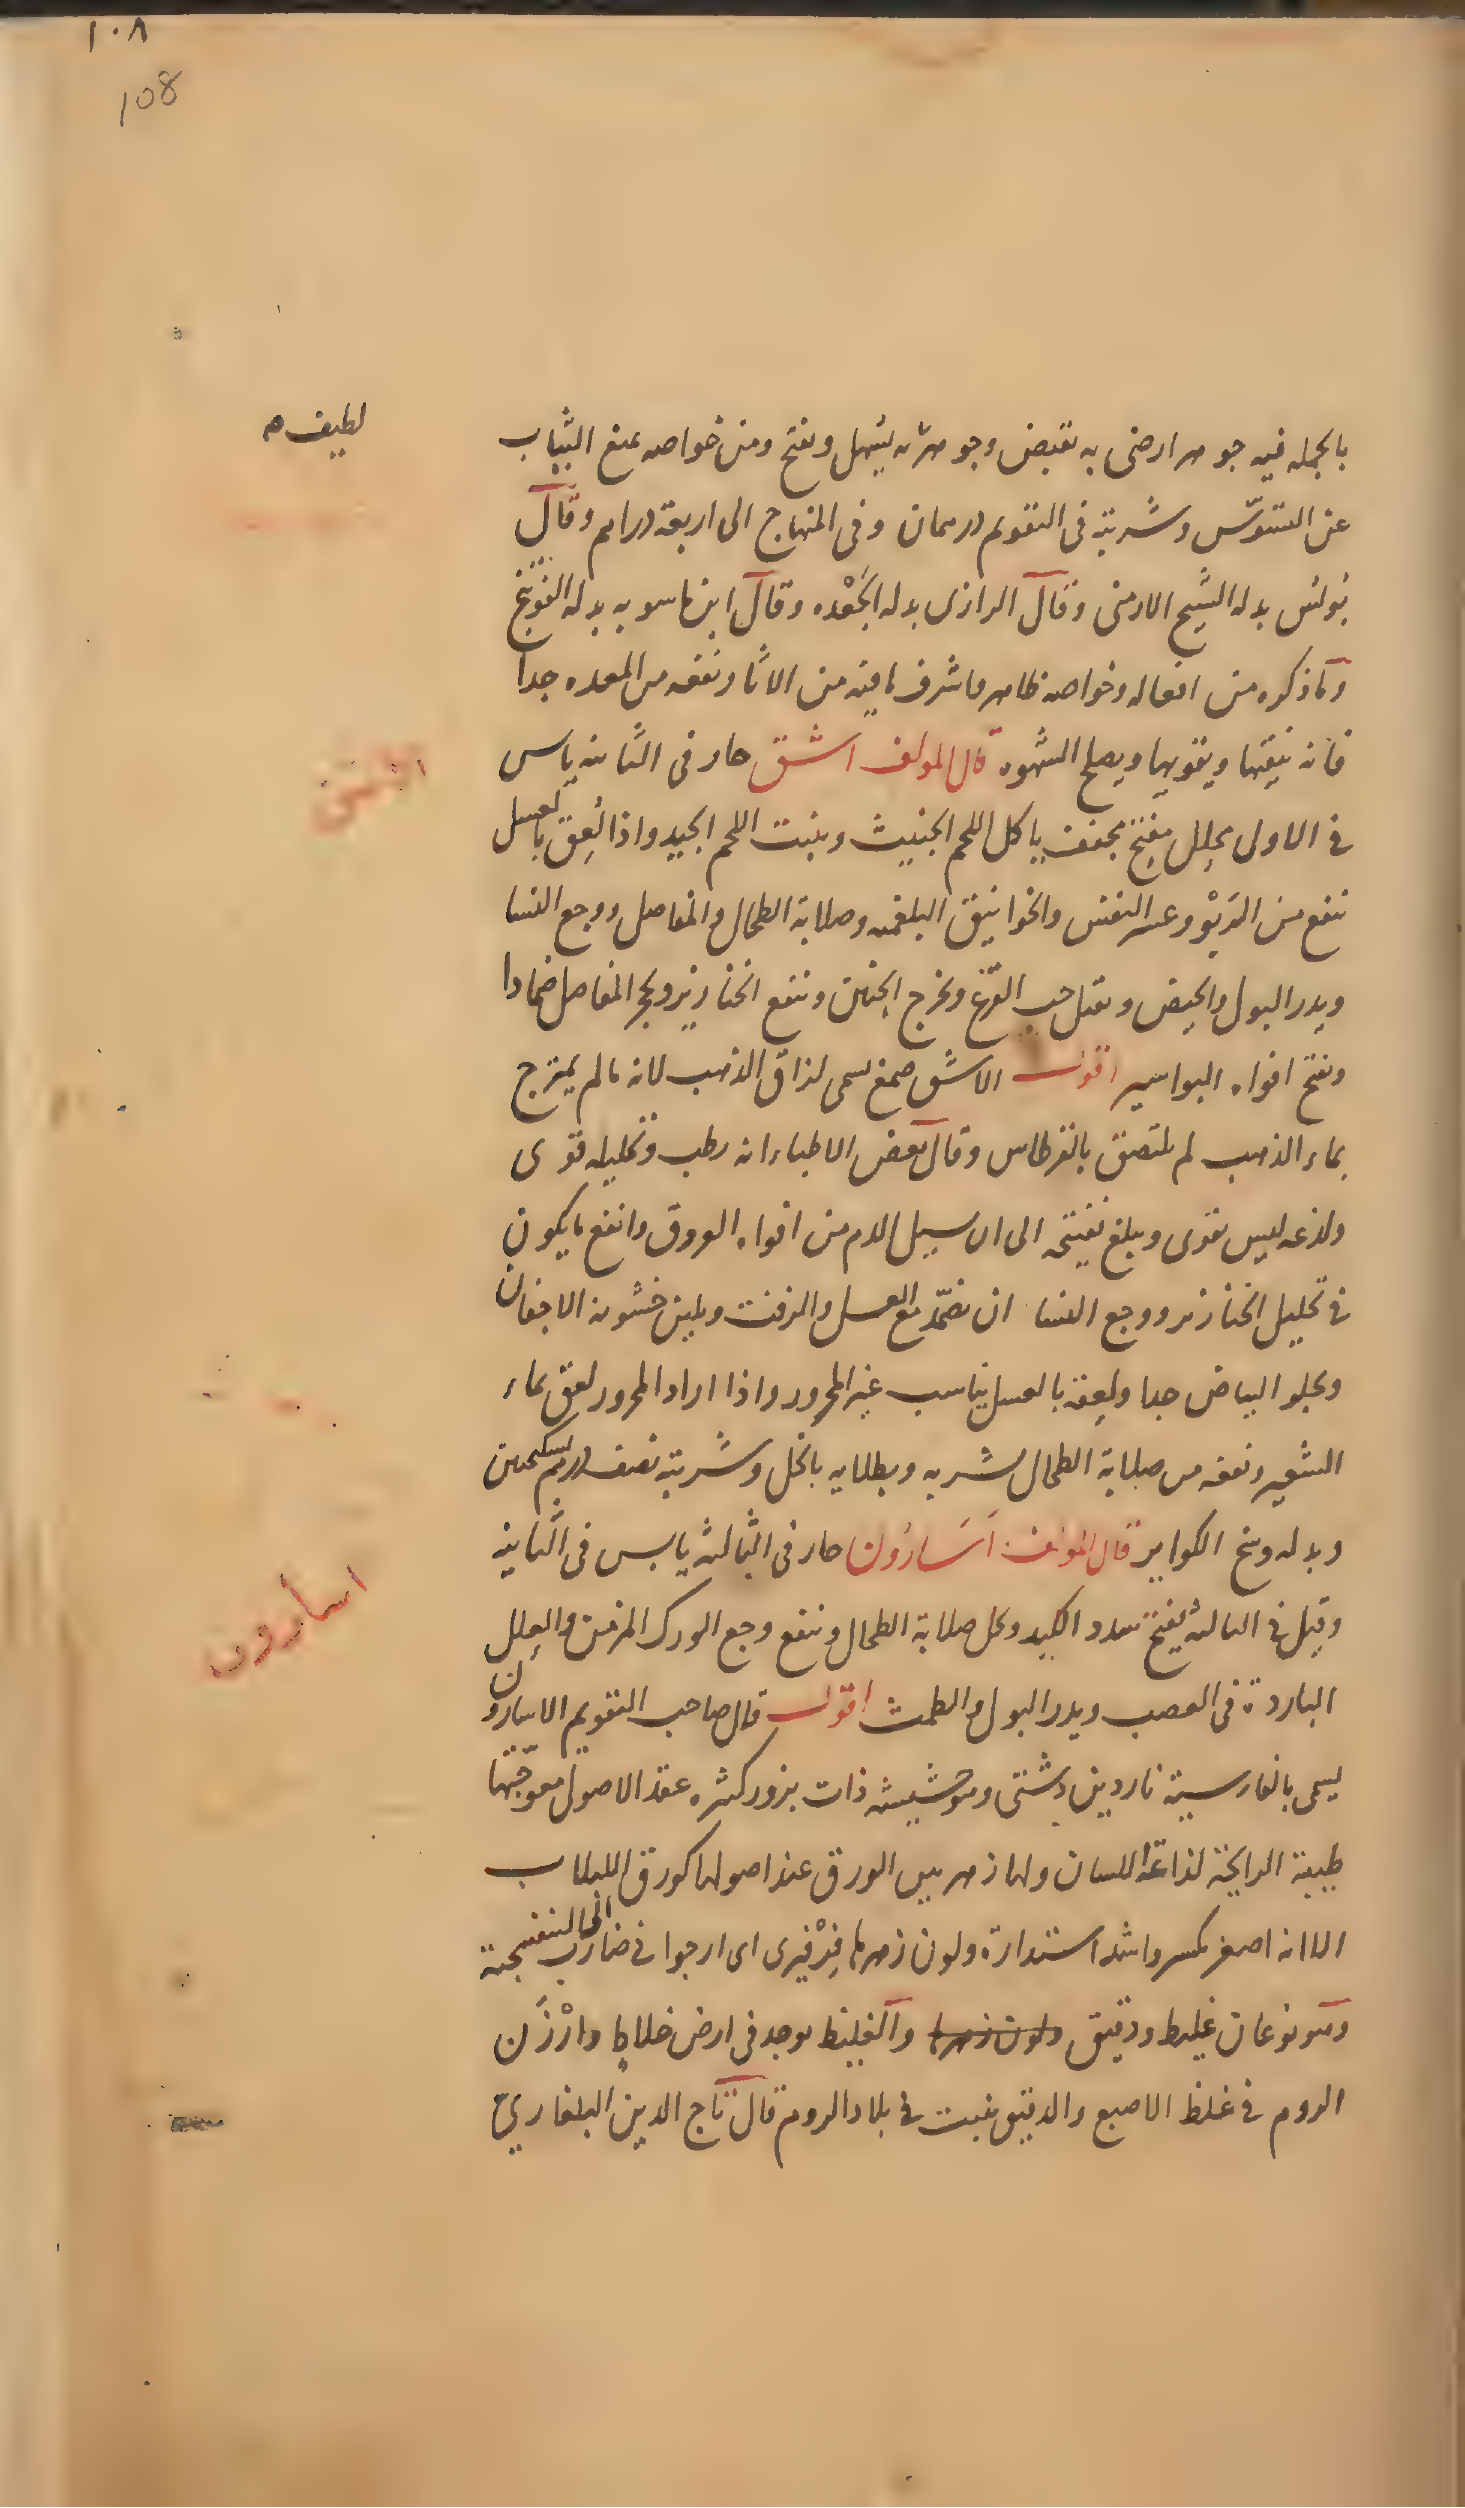 ١٠٨
108
لطيف م
بالجمله فيه جوهر ارضى به يقبض وجوهر به يسهل ويفتح ومن خواصه يمنع الثياب
عن التسوّس وشربته فى التقويم درهمان وفى المنهاج الى اربعة دراهم وقال
بُولس بدله الشيح الارمنى وقال الرازى بدله الجَعْده وقال ابن ماسويه بدله الفوتنج
وما ذكره من افعاله وخواصه ظاهر ما شرف مافيه من الاثار ونفعه من المعده جدا
فانه ينقيها ويقويها ويصلح الشهوه قال المولف اشق حار فى الثانيه يابس
اشق
فى الاولى محلل مفتح مجفف ياكل اللحم الخبيث وينبت اللحم الجيد واذا لُعِق بالعسل
نفع من الرَبْو وعسر النفس والخوانيق البلغميه وصلابة الطحال والمفاصل ووجع النسا
ويدر البول والحيض ويقتل حب القرع ويخرج الجنين وينفع الخنازير وتحجر المفاصل ضمادا
ويفتح افواه البواسير اقول الاشق صمغ يسمى لزاق الذهب لانه مالم يمتزج
بماء الذهب لم يلتصق بالقرطاس وقال بعض الاطباء انه رطب وتحليله قوى
ولذعه ليس بقوى ويبلغ تفتيحه الى ان يسيل الدم من افواه العروق وانفع مايكون
فى تحليل الخنازير ووجع النسا ان يضمّد مع العسل والزفت ويلين خشونه الاجفان
ويجلو البياض جدا ولعقه بالعسل يناسب غير المحرور واذا اراد المحرور لعق بماء
الشعير ونفعه من صلابة الطحال بشربه وبطلايه بالخل وشربته نصف درهم بسكنجبين
وبدله وسخ الكواير قال المولف اَسَارُون حار فى الثالثه يابس فى الثانيه
اسارون
وقيل فى الثالثه يفتح سدد الكبد ويحل صلابة الطحال وينفع وجع الورك المزمن والعلل
الباردة فى العصب ويدر البول والطمث اقول قال صاحب التقويم الاسارون
يسمى بالفارسية ناردين دشتى وهو حشيشه ذات بزور كثيره عقد الاصول معوجّتها
طيبة الرايحة لذاعة اللسان ولها زهر بين الورق عند اصولها كورق اللبلاب
الا انه اصغر بكسر واشد استدارة ولون زهرها فِرْفيرى اى ارجوانى ضارب الى البنفسجية
وهو نوعان غليظ ودقيق ولون زهرها والغليظ يوجد فى ارض خلاط وارْزَن
الروم فى غلظ الاصبع والدقيق ينبت فى بلاد الروم قال تاج الدين البلغارىّ